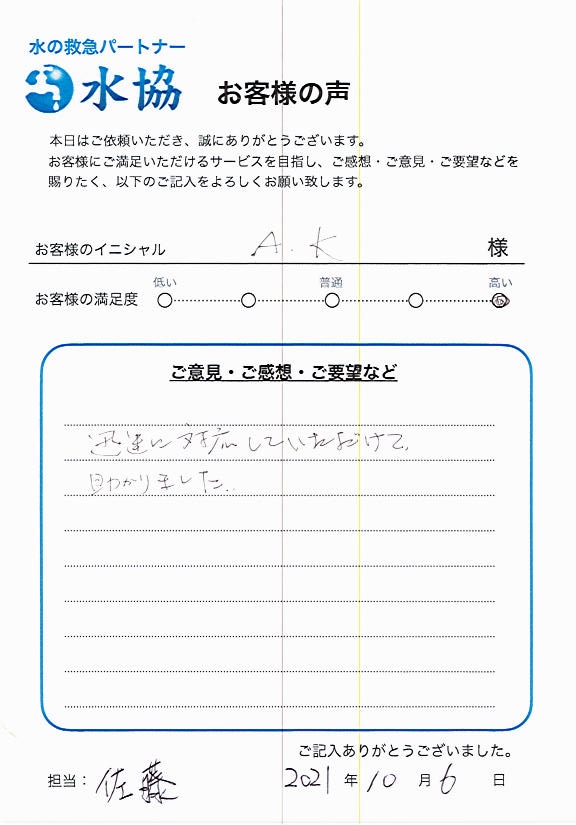 水の救急パートナー
水協 お客様の声
本日はご依頼いただき、誠にありがとうございます。
お客様にご満足いただけるサービスを目指し、ご感想・ご意見・ご要望などを
賜りたく、以下のご記入をよろしくお願い致します。
お客様のイニシャル A.K 様
低い 普通 高い
お客様の満足度
ご意見・ご感想・ご要望など
迅速に対応していただけて、
助かりました。
ご記入ありがとうございました。
担当: 佐藤 2021年10月6日